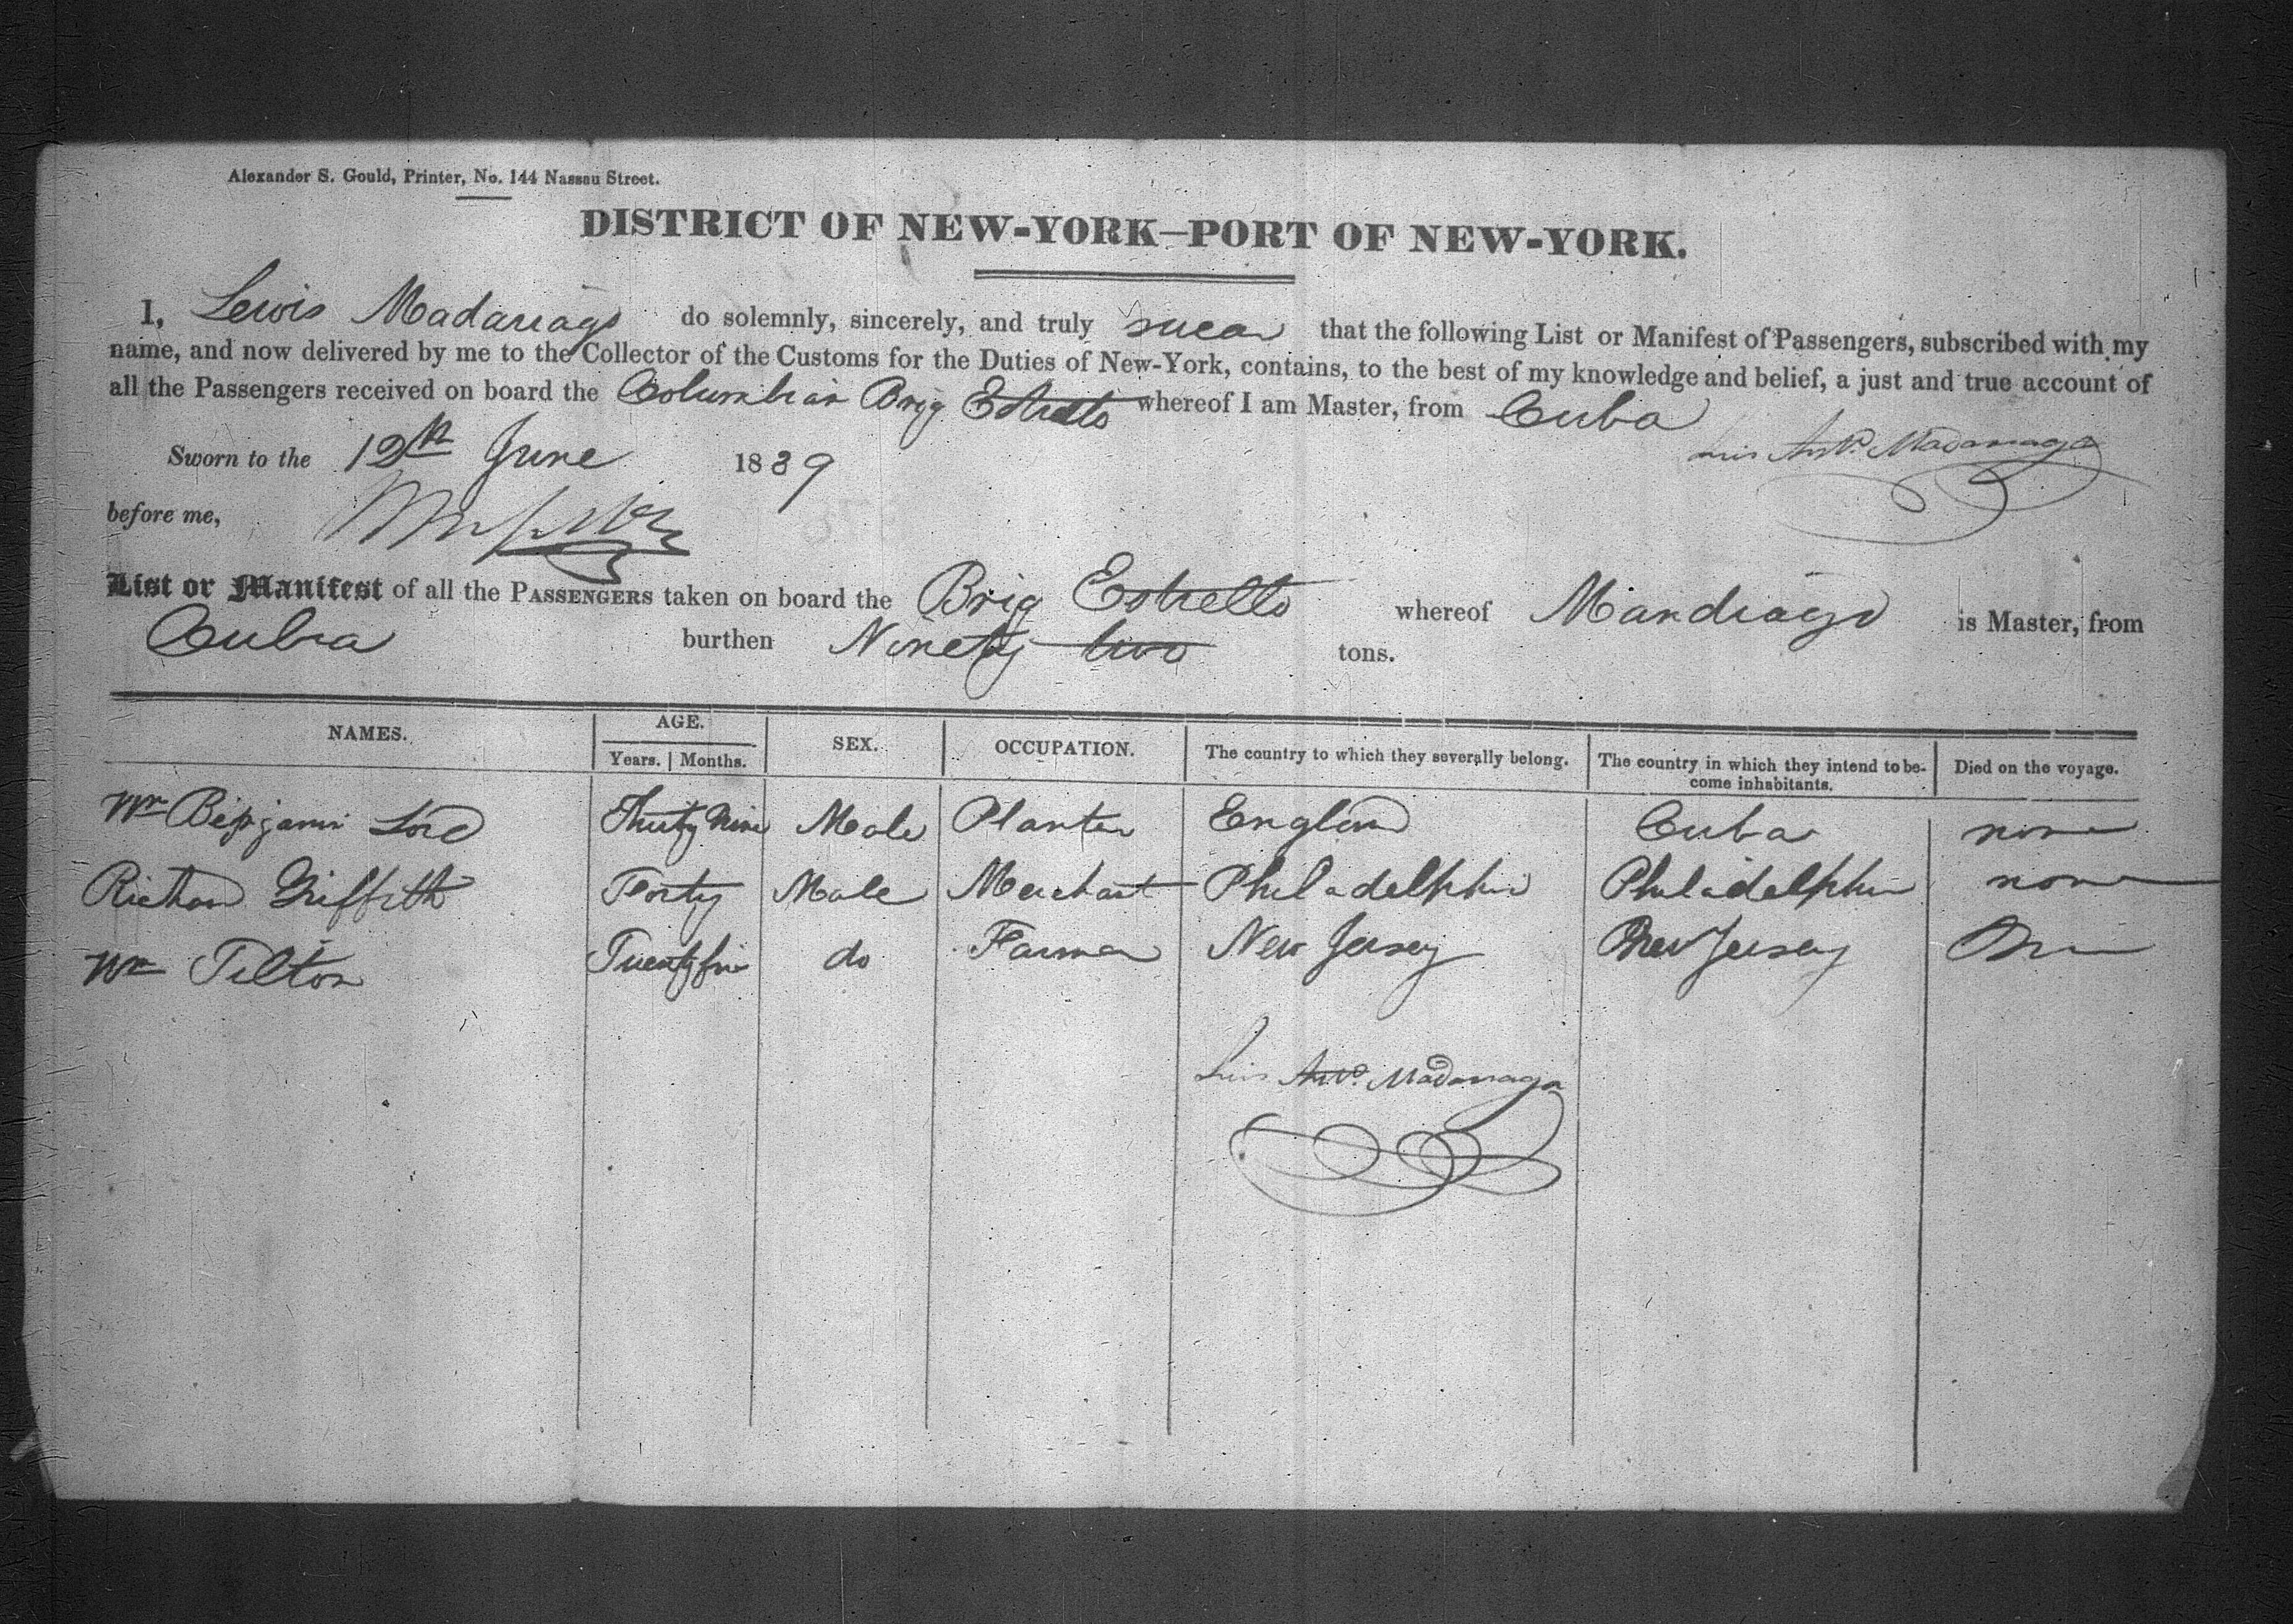 Alexander S. Gould, Printer, No. 144 Nassau Street.
DISTRICT OF NEW-YORK—PORT OF NEW-YORK.
I, Lewis Madariaga do solemnly, sincerely, and truly swear that the following List or Manifest of Passengers, subscribed with my
name, and now delivered by me to the Collector of the Customs for the Duties of New-York, contains, to the best of my knowledge and belief, a just and true account of
all the Passengers received on board the Columbian Brig Estrella whereof I am Master, from Cuba
Luis Anto. Madarriaga
Sworn to the 12th June 1839
before me,
List or Manifest of all the PASSENGERS taken on board the Brig Estrella whereof Mandiago is Master, from
Cuba burthen Ninety two tons.
NAMES. AGE. SEX. OCCUPATION. The country to which they severally belong. The country in which they intend to be- Died on the voyage.
Years. Months. come inhabitants.
Wm Benjamin Lord Thirty Nine Male Planter England Cuba none
Richard Griffith Forty Male Merchant Philadelphia Philadelphia none
Wm Tilton Twenty five do Farmer New Jersey New Jersey
Luis Anto. Madarriaga